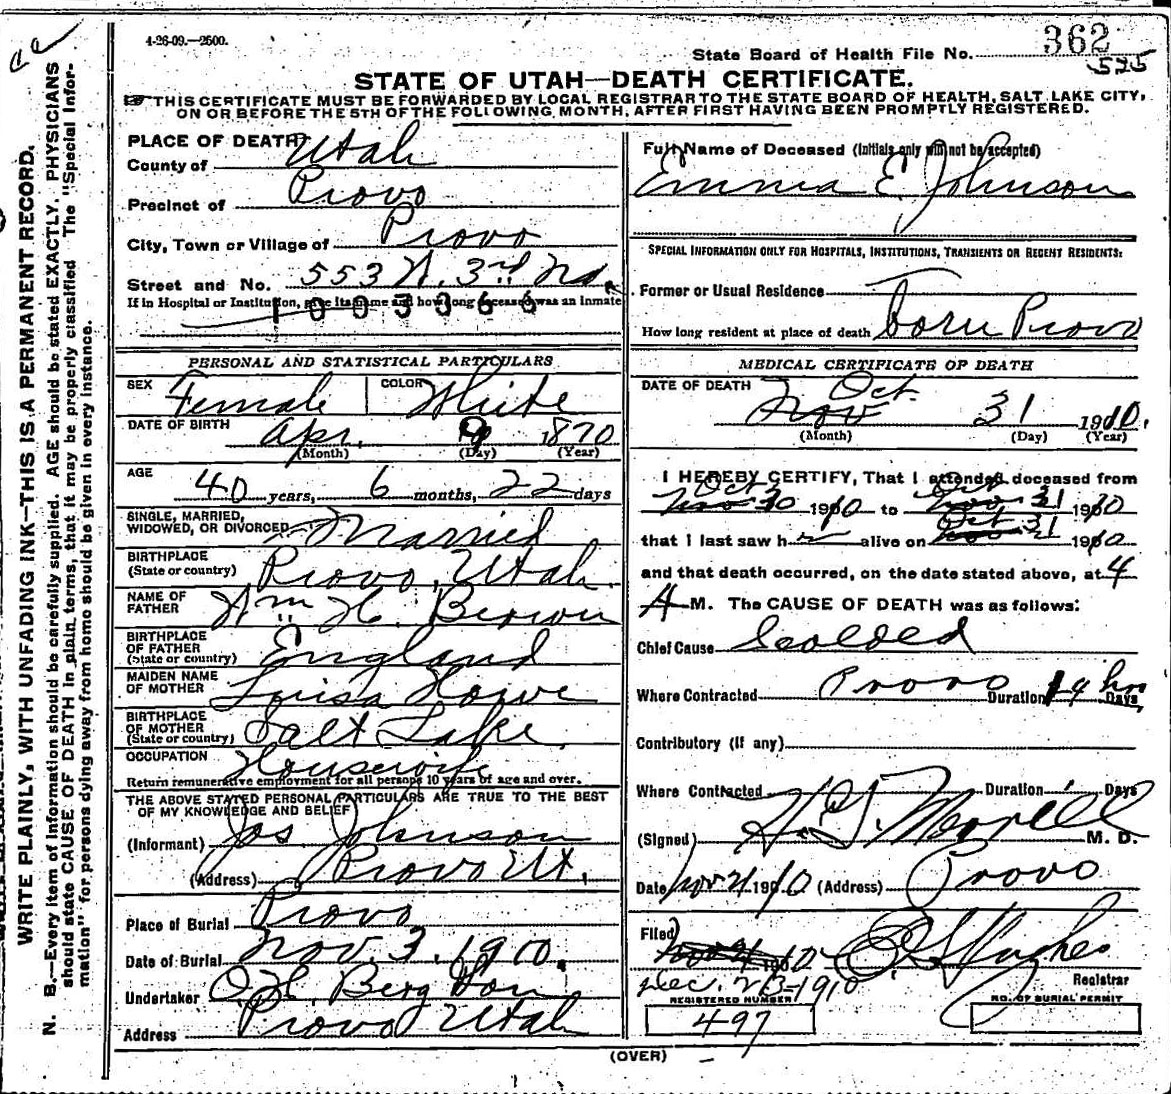 4-26-09.—2500.
State Board of Health File No. 362
525
STATE OF UTAH—DEATH CERTIFICATE.
THIS CERTIFICATE MUST BE FORWARDED BY LOCAL REGISTRAR TO THE STATE BOARD OF HEALTH, SALT LAKE CITY,
ON OR BEFORE THE 5TH OF THE FOLLOWING MONTH, AFTER FIRST HAVING BEEN PROMPTLY REGISTERED.
WRITE PLAINLY, WITH UNFADING INK—THIS IS A PERMANENT RECORD.
N. B.—Every item of information should be carefully supplied. AGE should be stated EXACTLY. PHYSICIANS
should state CAUSE OF DEATH in plain terms, that it may be properly classified The "Special Infor-
mation" for persons dying away from home should be given in every instance.
PLACE OF DEATH
County of Utah
Precinct of Provo
City, Town or Village of Provo
Street and No. 553 W. 3rd No.
If in Hospital or Institution, give its name and how long deceased was an inmate
1003366
PERSONAL AND STATISTICAL PARTICULARS
SEX Female COLOR White
DATE OF BIRTH Apr. 9 1870
(Month) (Day) (Year)
AGE 40 years, 6 months, 22 days
SINGLE, MARRIED,
WIDOWED, OR DIVORCED Married
BIRTHPLACE
(State or country) Provo, Utah.
NAME OF
FATHER Wm H. Brown
BIRTHPLACE
OF FATHER
(State or country) England
MAIDEN NAME
OF MOTHER Luisa Howe
BIRTHPLACE
OF MOTHER
(State or country) Salt Lake.
OCCUPATION Housewife
Return remunerative employment for all persons 10 years of age and over.
THE ABOVE STATED PERSONAL PARTICULARS ARE TRUE TO THE BEST
OF MY KNOWLEDGE AND BELIEF
(Informant) Jos Johnson
(Address) Provo Ut.
Place of Burial Provo
Date of Burial Nov. 3, 1910.
Undertaker O. H. Berg & Son
Address Provo Utah
Full Name of Deceased (Initials only will not be accepted)
Emma E. Johnson
SPECIAL INFORMATION ONLY FOR HOSPITALS, INSTITUTIONS, TRANSIENTS OR RECENT RESIDENTS:
Former or Usual Residence
How long resident at place of death born Provo
MEDICAL CERTIFICATE OF DEATH
DATE OF DEATH Oct.
Nov 31 1910.
(Month) (Day) (Year)
I HEREBY CERTIFY, That I attended deceased from
Oct Nov 30 1910 to Oct Nov 31 1910
that I last saw h r alive on Oct 31 1910
and that death occurred, on the date stated above, at 4
A M. The CAUSE OF DEATH was as follows:
Chief Cause Scolded
Where Contracted Provo Duration 19 hrs Days
Contributory (if any)
Where Contracted Duration Days
(Signed) H G Merrill M. D.
Date Nov 2 1910 (Address) Provo
Filed 1910 Hughes
Dec. 23-1910 Registrar
REGISTERED NUMBER
497
NO. OF BURIAL PERMIT
(OVER)